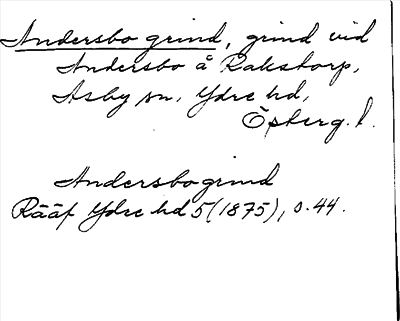 Andersbo grind, grind vid
Andersbo å Rakstorp,
Asby sn, Ydre hd,
Östberg. l.
Andersbogrind
Rääf Ydre hd 5 (1875), s. 44.